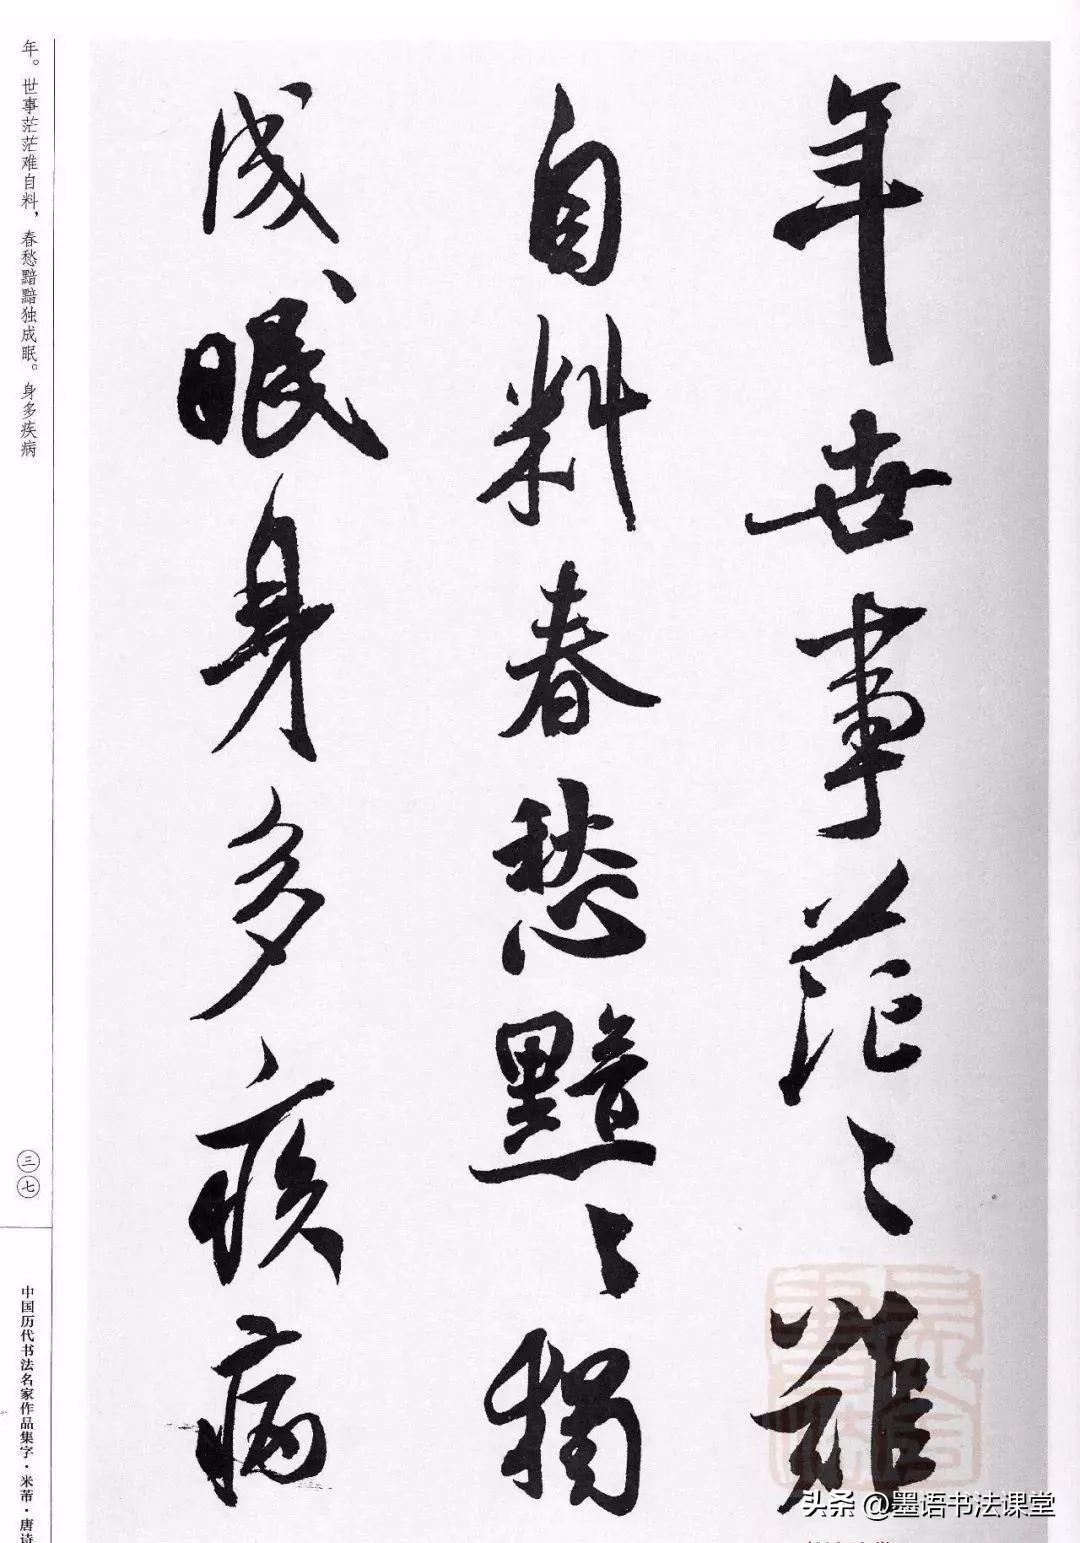 年世事茫〻難
自料春愁黯〻獨
成眠身多疾病
年。世事茫茫难自料，春愁黯黯独成眠。身多疾病
三七
中国历代书法名家作品集字·米芾·唐诗
头条@墨语书法课堂